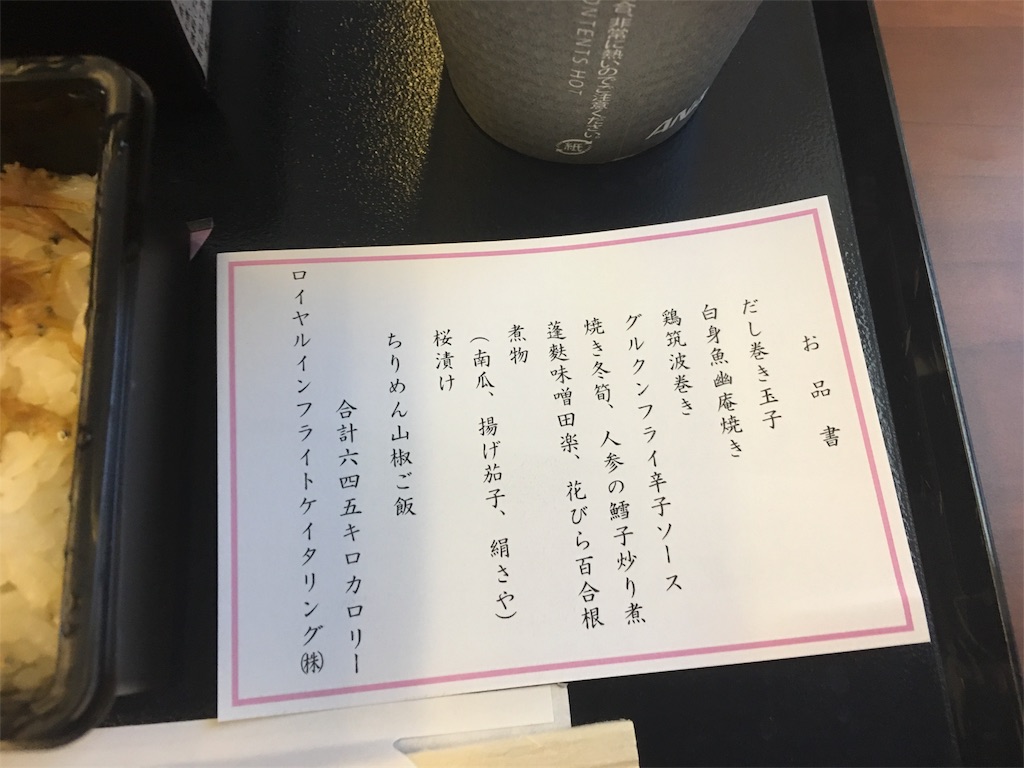 お品書
だし巻き玉子
白身魚幽庵焼き
鶏筑波巻き
グルクンフライ辛子ソース
焼き冬筍、人参の鱈子炒り煮
蓬麩味噌田楽、花びら百合根
煮物
(南瓜、揚げ茄子、絹さや)
桜漬け
ちりめん山椒ご飯
合計六四五キロカロリー
ロイヤルインフライトケイタリング㈱
非常に熱いのでご注意ください
CONTENTS HOT
紙